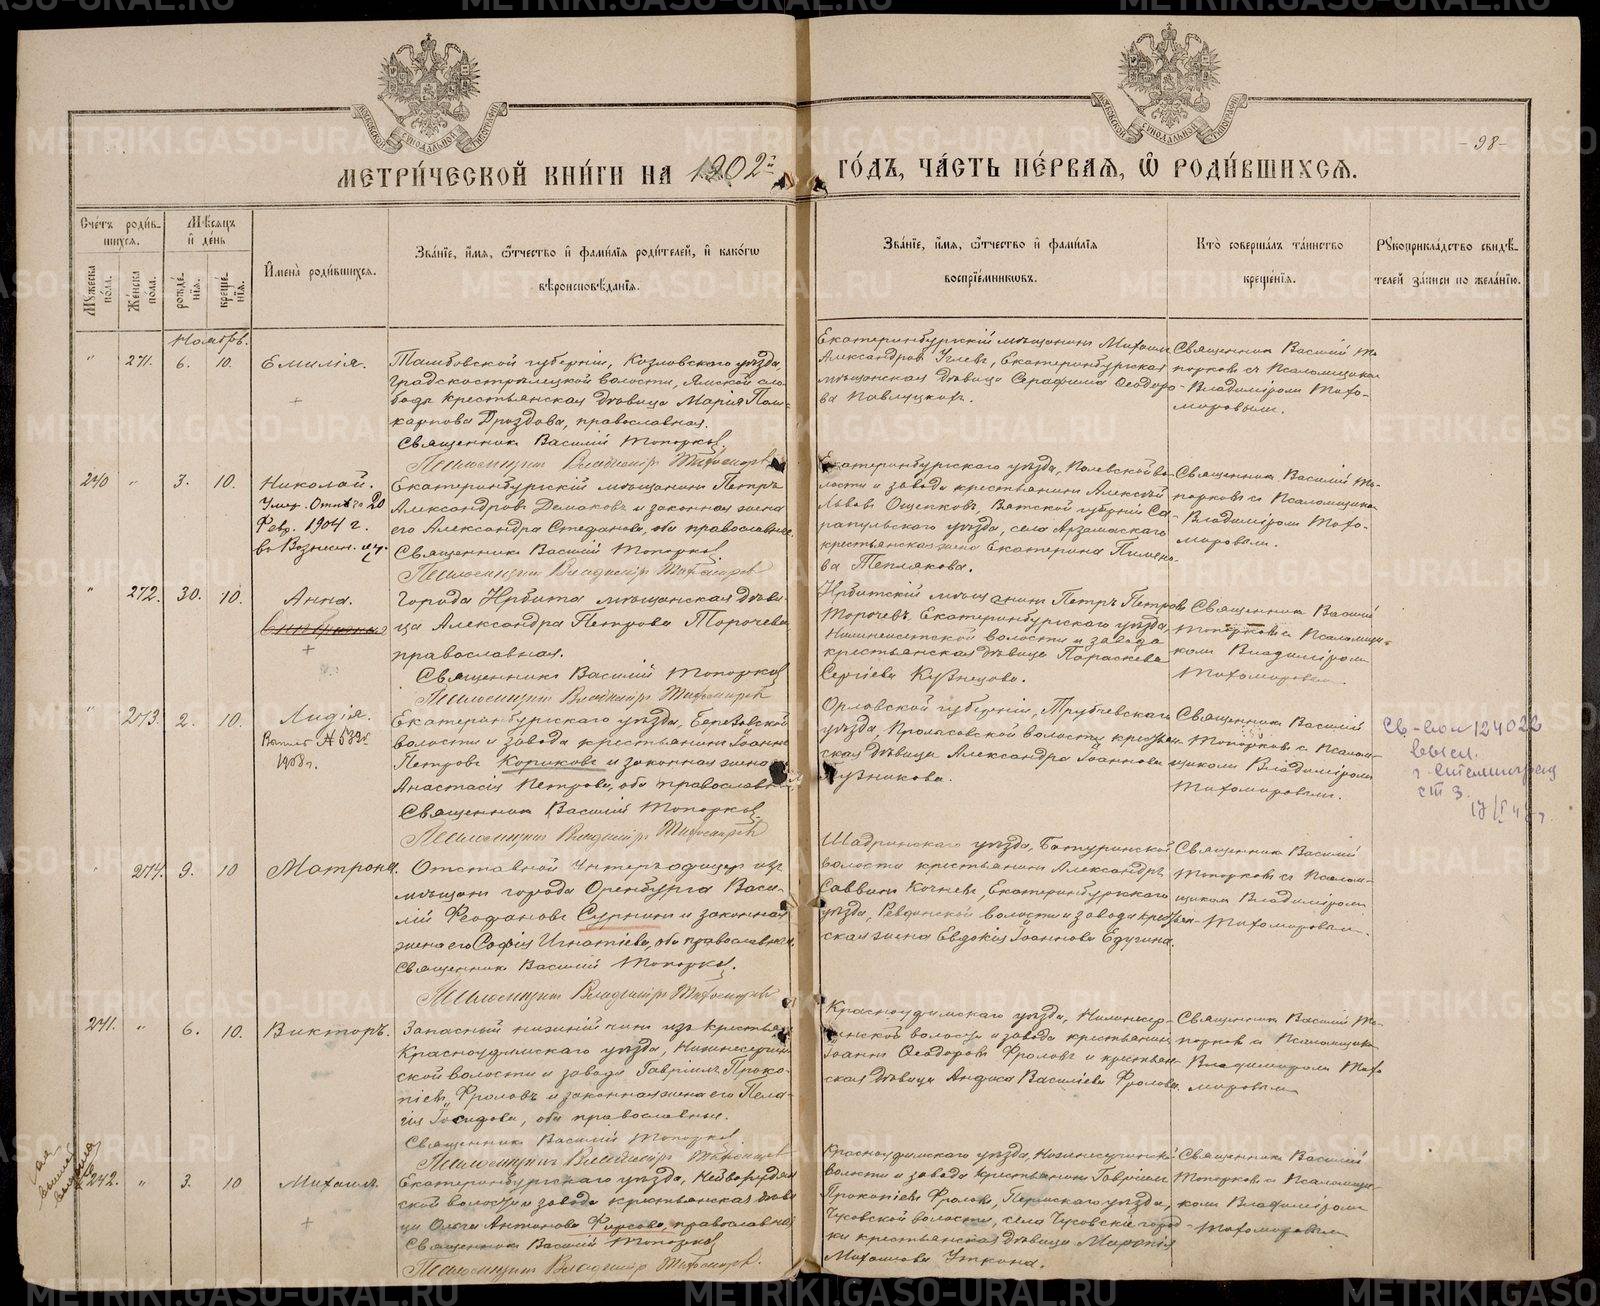 МЕТРИ́ЧЕСКОЙ КНИ́ГИ НА 1902й
ГО́ДЪ, ЧА́СТЬ ПЕ́РВАѦ, Ѡ РОДИ́ВШИХСѦ.
-98-
Сче́тъ роди́в-
шихся.
Мѣ́сяцъ
и де́нь
Му́жеска по́ла.
Же́нска по́ла.
рожде́-
нія.
креще́-
нія.
Имена̀ роди́вшихся.
Зва́ніе, и́мя, о́тчество и фами́лія роди́телей, и како́гѡ
вѣроисповѣ́данія.
Зва́ніе, и́мя, о́тчество и фами́лія
воспріе́мниковъ.
Кто̀ соверша́лъ та́инство
креще́нія.
Рукоприкла́дство свидѣ́-
телей за́писи по жела́нію.
Ноябрь.
" 271. 6. 10. Емилія.
Тамбовской губерніи, Козловскаго уѣзда,
волости, Ямской сло-
боды крестьянская дѣвица Марія Поли-
карпова Дроздова, православная.
Священникъ Василій Топорковъ.
Псаломщикъ Владиміръ Тихомировъ
Екатеринбургскій мѣщанинъ Михаилъ
Александровъ Углевъ, Екатеринбургская
мѣщанская дѣвица Серафима Ѳеодоро-
ва Павлуцкихъ.
Священникъ Василій То-
порковъ съ Псаломщикомъ
Владиміромъ Тихо-
мировымъ.
240 " 3. 10. Николай.
Умер. 20
Фев. 1904 г.
въ Вознесен. цр.
Екатеринбургскій мѣщанинъ Петръ
Александровъ Демаковъ и законная жена
его Александра Стефанова, оба православные.
Священникъ Василій Топорковъ.
Псаломщикъ Владиміръ Тихомировъ
Екатеринбургскаго уѣзда, Полевской во-
лости и завода крестьянинъ Алексѣй
Львовъ Ощепковъ, Вятской губерніи Са-
рапульскаго уѣзда, села Арзамаскаго
крестьянская жена Екатерина Пимено-
ва Теплякова.
Священникъ Василій То-
порковъ съ Псаломщикомъ
Владиміромъ Тихо-
мировымъ.
" 272. 30. 10. Анна.
Города Ирбита мѣщанская дѣви-
ца Александра Петрова Торочева,
православная.
Священникъ Василій Топорковъ
Псаломщикъ Владиміръ Тихомировъ
Ирбитскій мѣщанинъ Петръ Петровъ
Торочевъ, Екатеринбургскаго уѣзда,
Нижнеисетской волости и завода
крестьянская дѣвица Параскева
Сергіева Кузнецова.
Священникъ Василій
Топорковъ съ Псаломщи-
комъ Владиміромъ
Тихомировымъ.
" 273. 2. 10. Лидія.
Выпись № 532
1908 г.
Екатеринбургскаго уѣзда, Березовской
волости и завода крестьянинъ Іоаннъ
Петровъ Коряковъ и законная жена его
Анастасія Петрова, оба православные.
Священникъ Василій Топорковъ.
Псаломщикъ Владиміръ Тихомировъ
Орловской губерніи, Трубчевскаго
уѣзда, волости крестьян-
ская дѣвица Александра Іоаннова
Пузникова.
Священникъ Василій
Топорковъ съ Псалом-
щикомъ Владиміромъ
Тихомировымъ.
Св-во
" 274. 9. 10 Матрона.
Отставной Унтеръ-офицеръ изъ
мѣщанъ города Оренбурга Васи-
лій Ѳеофановъ Сурнинъ и законная
жена его Софія Игнатіева, оба православные.
Священникъ Василій Топорковъ.
Псаломщикъ Владиміръ Тихомировъ
Шадринскаго уѣзда, Батуринской
волости крестьянинъ Александръ
Саввинъ Кочневъ, Екатеринбургскаго
уѣзда, Ревдинской волости и завода крестьян-
ская жена Евдокія Іоаннова Едугина.
Священникъ Василій
Топорковъ съ Псалом-
щикомъ Владиміромъ
Тихомировымъ.
241. " 6. 10. Викторъ.
Запасный нижній чинъ изъ крестьянъ
Красноуфимскаго уѣзда, Нижнесергин-
ской волости и завода Гавріилъ Проко-
піевъ Фроловъ и законная жена его Пела-
гія Іосифова, оба православные.
Священникъ Василій Топорковъ.
Псаломщикъ Владиміръ Тихомировъ
Красноуфимскаго уѣзда, Нижнесер-
гинской волости и завода крестьянинъ
Іоаннъ Ѳеодоровъ Фроловъ и крестьян-
ская дѣвица Анфиса Василіева Фролова.
Священникъ Василій То-
порковъ съ Псаломщикомъ
Владиміромъ Тихо-
мировымъ
242. " 3. 10 Михаилъ.
Екатеринбургскаго уѣзда, Нейворудян-
ской волости и завода крестьянская дѣви-
ца Ольга Антонова Фирсова, православная
Священникъ Василій Топорковъ
Псаломщикъ Владиміръ Тихомировъ.
Красноуфимскаго уѣзда, Нижнесергинской
волости и завода крестьянинъ Гавріилъ
Прокопіевъ Фроловъ, Пермскаго уѣзда,
Чусовской волости, села Чусовскіе город-
ки крестьянская дѣвица Марія
Михаилова Уткина.
Священникъ Василій
Топорковъ съ Псаломщи-
комъ Владиміромъ
Тихомировымъ
METRIKI.GASO-URAL.RU